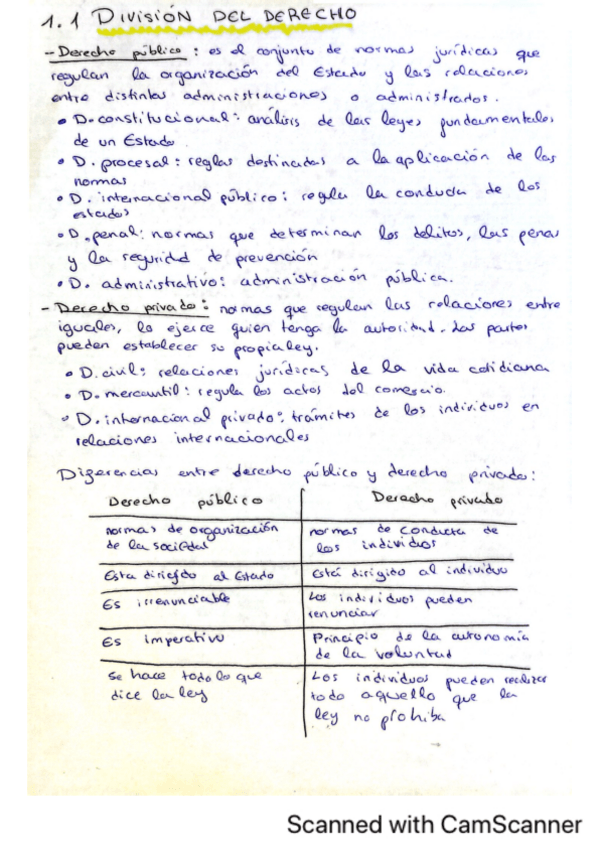 1.1 DIVISIÓN DEL DERECHO
- Derecho público: es el conjunto de normas jurídicas que
regulan la organización del Estado y las relaciones
entre distintas administraciones o administrados.
• D. constitucional: análisis de las leyes fundamentales
de un Estado.
• D. procesal: reglas destinadas a la aplicación de las
normas
• D. internacional público: regula la conducta de los
estados
• D. penal: normas que determinan los delitos, las penas
y la seguridad de prevención
• D. administrativo: administración pública.
- Derecho privado: normas que regulan las relaciones entre
iguales, lo ejerce quien tenga la autoridad. Las partes
pueden establecer su propia ley.
• D. civil: relaciones jurídicas de la vida cotidiana
• D. mercantil: regula los actos del comercio.
• D. internacional privado: trámites de los individuos en
relaciones internacionales
Diferencias entre derecho público y derecho privado:
Derecho público | Derecho privado
normas de organización | normas de conducta de
de la sociedad | los individuos
Esta dirigido al Estado | Está dirigido al individuo
Es irrenunciable | Los individuos pueden
renunciar
Es imperativo | Principio de la autonomía
de la voluntad
Se hace todo lo que | Los individuos pueden realizar
dice la ley | todo aquello que la
ley no prohiba
Scanned with CamScanner